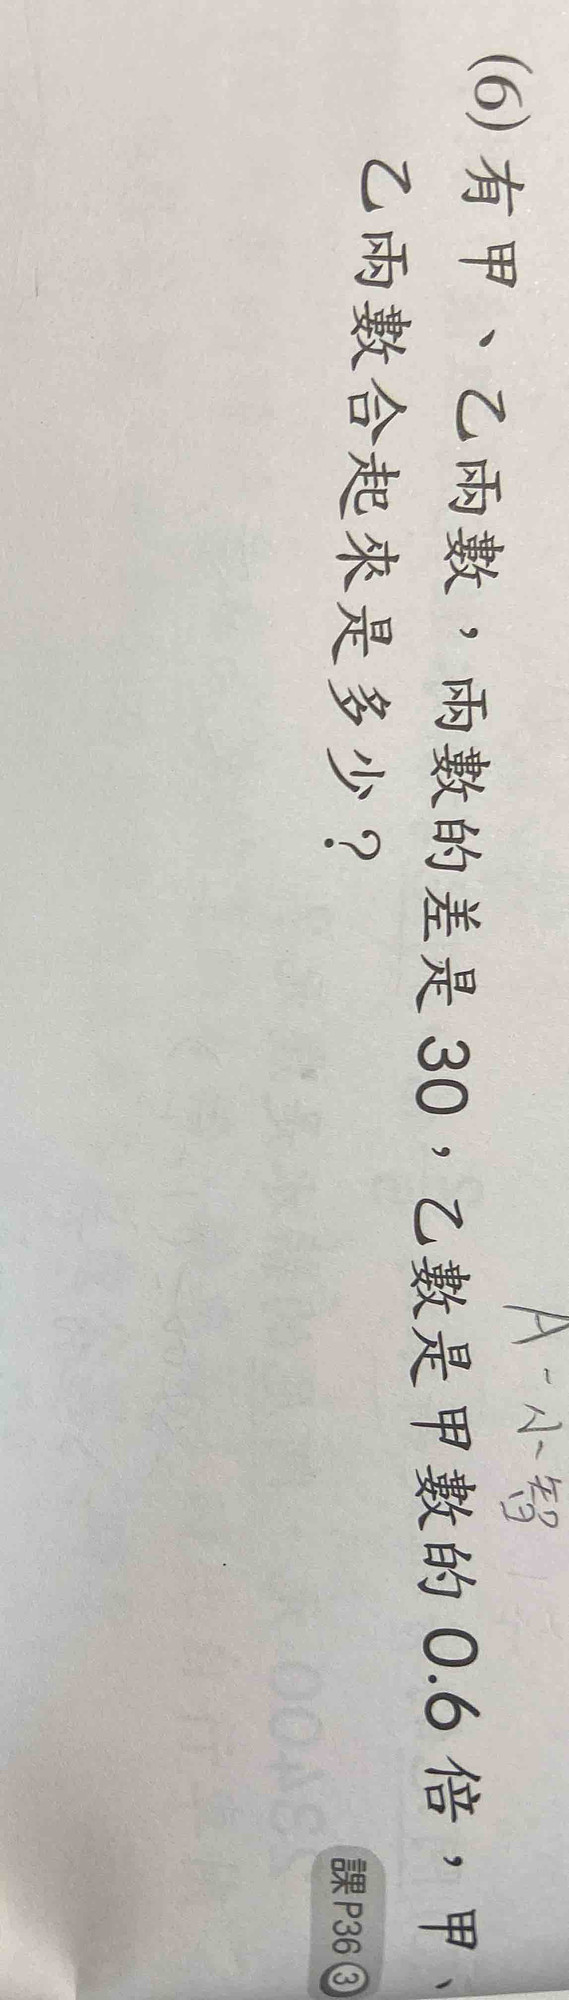 A-小智
(6) 有甲、乙兩數，兩數的差是30，乙數是甲數的0.6倍，甲、
乙兩數合起來是多少？
課P36③